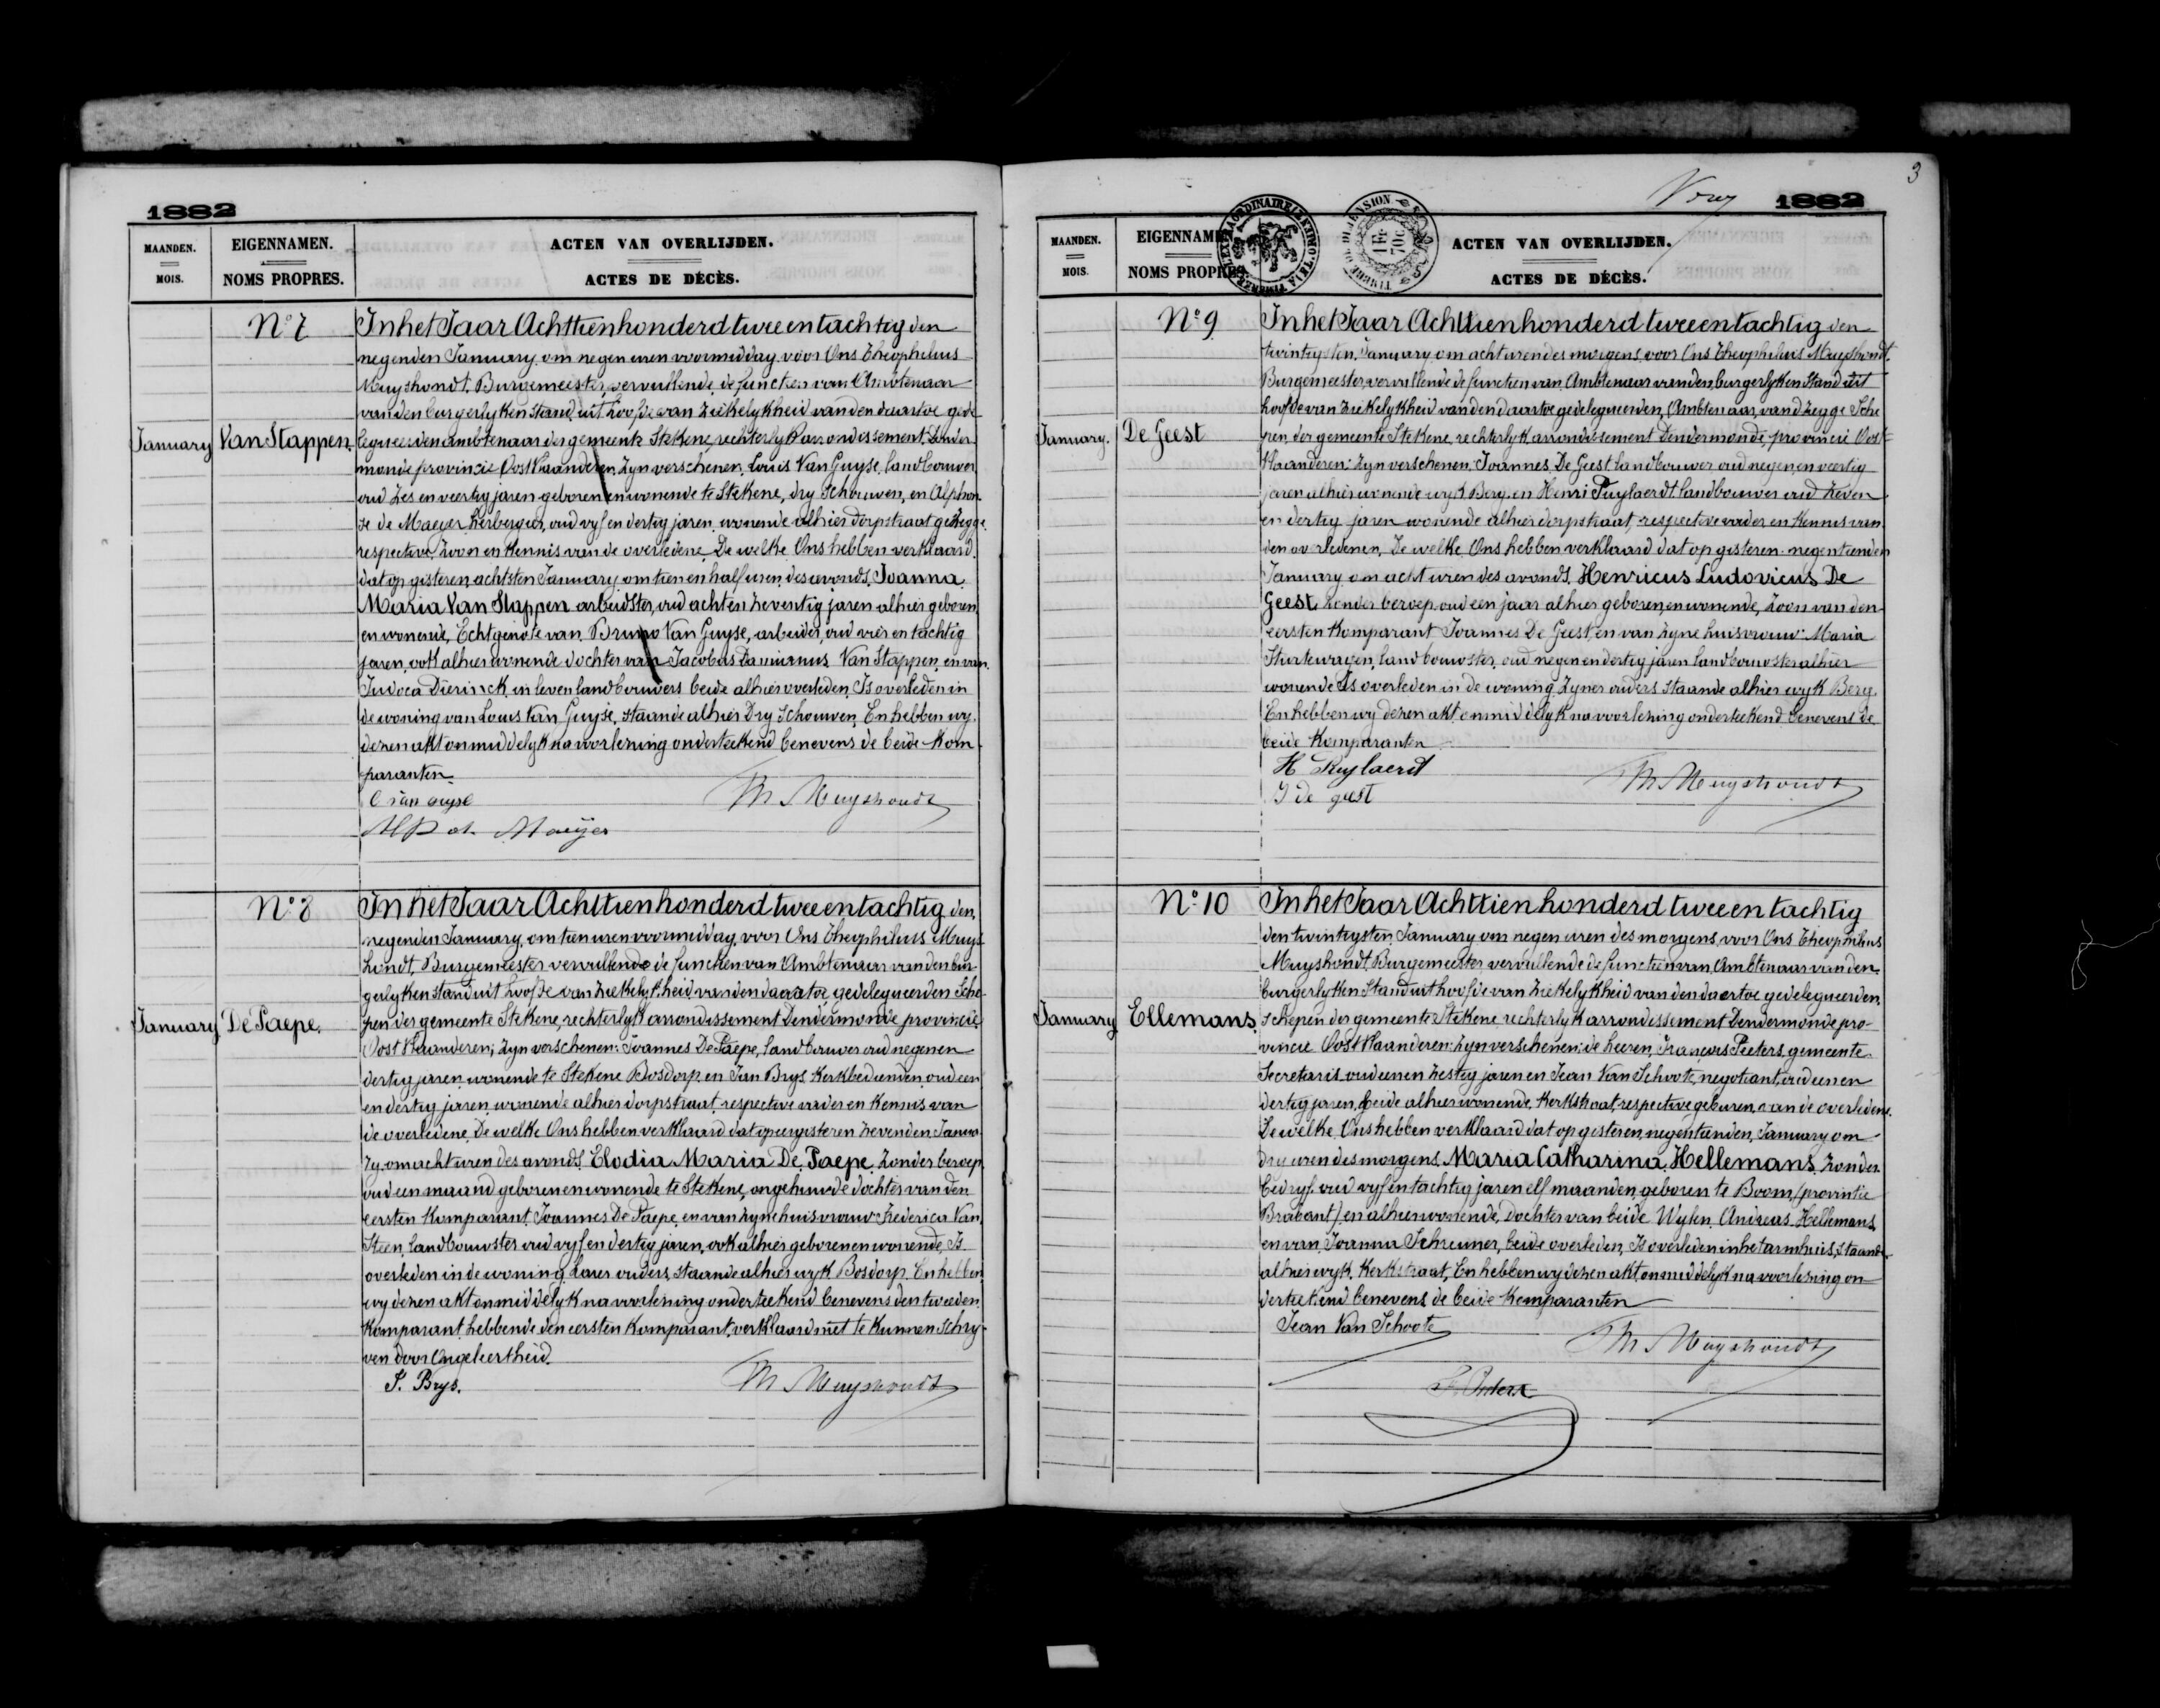 1882
MAANDEN.
MOIS.
EIGENNAMEN.
NOMS PROPRES.
ACTEN VAN OVERLIJDEN.
ACTES DE DÉCÈS.
No 7
In het Jaar Achttien honderd twee en tachtig den
negenden January om negen uren voormiddag voor Ons Theophilus
Muyshondt, Burgemeester, vervullende de functien van Ambtenaar
van den burgerlyken stand, uit hoofde van ziekelykheid van den daartoe gede-
January
Van Stappen.
legueerden ambtenaar der gemeente Stekene, rechterlyk arrondissement Dender-
monde provincie Oost Vlaanderen, zyn verschenen, Louis Van Guyse, landbouwer
oud zes en veertig jaren geboren en wonende te Stekene, dry Schouwen, en Alphon-
se de Maeyer herbergier, oud vyf en dertig jaren, wonende alhier dorpstraat gezegge
respective zoon en kennis van de overledene De welke Ons hebben verklaard
dat op gisteren, achtsten January om tien en half uren des avonds, Joanna
Maria Van Stappen arbeidster, oud acht en zeventig jaren alhier geboren
en wonende, Echtgenote van Bruno Van Guyse, arbeider, oud vier en tachtig
jaren, ook alhier wonende dochter van Jacobus Damianus Van Stappen, en van
Judoca Dierinck, in leven landbouwers beide alhier overleden, Is overleden in
de woning van Louis Van Guyse, staande alhier Dry Schouwen, En hebben wy
dezen akt onmiddelyk na voorlezing onderteekend benevens de beide kom-
paranten.
L van Guyse
Th Muyshondt
Alp de Maeyer
No 8
In het Jaar Achttien honderd twee en tachtig den
negenden January, om tien uren voormiddag, voor Ons Theophilus Muys-
hondt, Burgemeester vervullende de functien van Ambtenaar van den bur-
gerlyken stand uit hoofde van ziekelykheid van den daartoe gedelegueerden Sche-
January
De Paepe.
pen der gemeente Stekene, rechterlyk arrondissement Dendermonde provincie
Oost Vlaanderen; zyn verschenen: Joannes De Paepe, landbouwer oud negen en
dertig jaren, wonende te Stekene Bosdorp, en Jan Brys kerkbediende, oud een
en dertig jaren, wonende alhier dorpstraat, respective vader en kennis van
de overledene, De welke Ons hebben verklaard dat op eergisteren zevenden Janua-
ry, om acht uren des avonds, Elodia Maria De Paepe zonder beroep,
oud een maand geboren en wonende te Stekene, ongehuwde dochter van den
eersten komparant Joannes De Paepe, en van zyne huisvrouw Frederica Van
Steen, landbouwster oud vyf en dertig jaren, ook alhier geboren en wonende, Is
overleden in de woning harer ouders, staande alhier wyk Bosdorp. En hebben
wy dezen akt onmiddelyk na voorlezing onderteekend benevens den tweeden
komparant, hebbende den eersten komparant, verklaard niet te kunnen schry-
ven door ongeleertheid.
J. Brys.
Th Muyshondt
3
1882
MAANDEN.
MOIS.
EIGENNAMEN
NOMS PROPRES.
ACTEN VAN OVERLIJDEN.
ACTES DE DÉCÈS.
1 Fr
70c
No 9
In het Jaar Achttien honderd twee en tachtig den
twintigsten January om acht uren des morgens, voor Ons Theophilus Muyshondt,
Burgemeester, vervullende de functien van Ambtenaar van den burgerlyken Stand uit
hoofde van ziekelykheid van den daartoe gedelegueerden, Ambtenaar, van d zegge Sche-
January.
De Geest
pen, der gemeente Stekene, rechterlyk arrondissement Dendermonde, provincie Oost-
Vlaanderen: zyn verschenen: Joannes De Geest landbouwer, oud negen en veertig
jaren alhier wonende wyk Berg, en Henri Puylaerdt landbouwer oud zeven
en dertig jaren wonende alhier dorpstraat, respective vader en kennis van
den overledenen, De welke Ons hebben verklaard dat op gisteren negentienden
January om acht uren des avonds, Henricus Ludovicus De
Geest zonder beroep, oud een jaar alhier geboren, en wonende, zoon van den
eersten komparant Joannes De Geest, en van zyne huisvrouw: Maria
landbouwster, oud negen en dertig jaren landbouwster alhier
wonende Is overleden in de woning zyner ouders staande alhier wyk Berg.
En hebben wy dezen akt onmiddelyk na voorlezing onderteekend benevens de
beide komparanten
H Puylaerd
Th Muyshondt
J De geest
No 10
In het Jaar Achttien honderd twee en tachtig
den twintigsten January om negen uren des morgens, voor Ons Theophilus
Muyshondt, Burgemeester vervullende de functien van Ambtenaar van den
burgerlyken Stand uit hoofde van ziekelykheid van den daartoe gedelegueerden,
January
Ellemans.
Schepen der gemeente Stekene rechterlyk arrondissement Dendermonde pro-
vincie Oost Vlaanderen: zyn verschenen: de heeren, François Peeters, gemeente
Secretaris oud een en zestig jaren en Jean Van Schoote, negotiant, oud een en
dertig jaren, beide alhier wonende, kerkstraat, respective geburen, van de overledene.
De welke Ons hebben verklaard dat op gisteren, negentienden, January om
dry uren des morgens, Maria Catharina Hellemans, zonder
bedryf, oud vyf en tachtig jaren elf maanden, geboren te Boom, (provintie
Brabant) en alhier wonende, Dochter van beide Wylen Andreas Hellemans
en van Joanna Schrunner, beide overleden, Is overleden in het armhuis, staande
alhier wyk, kerkstraat, En hebben wy dezen akt, onmiddelyk na voorlezing on-
derteekend benevens de beide komparanten
Jean Van Schoote
Th Muyshondt